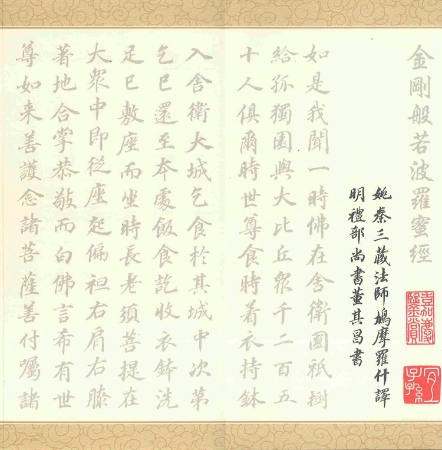 金剛般若波羅蜜經
姚秦三藏法師鳩摩羅什譯
明禮部尚書董其昌書
如是我聞一時佛在舍衛國祇樹
給孤獨園與大比丘眾千二百五
十人俱爾時世尊食時着衣持鉢
入舍衛大城乞食於其城中次第
乞已還至本處飯食訖收衣鉢洗
足已敷座而坐時長老須菩提在
大眾中即從座起偏袒右肩右膝
著地合掌恭敬而白佛言希有世
尊如来善護念諸菩薩善付囑諸